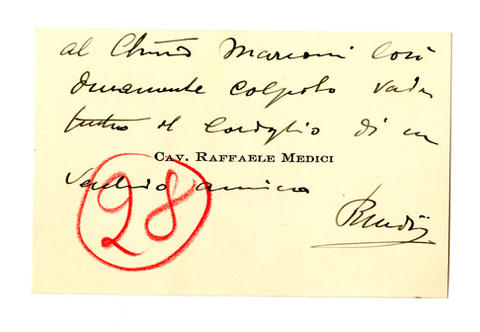 al Chmo Marconi così
duramente colpito vada
tutto il cordoglio di un
CAV. RAFFAELE MEDICI
vecchio amico
28